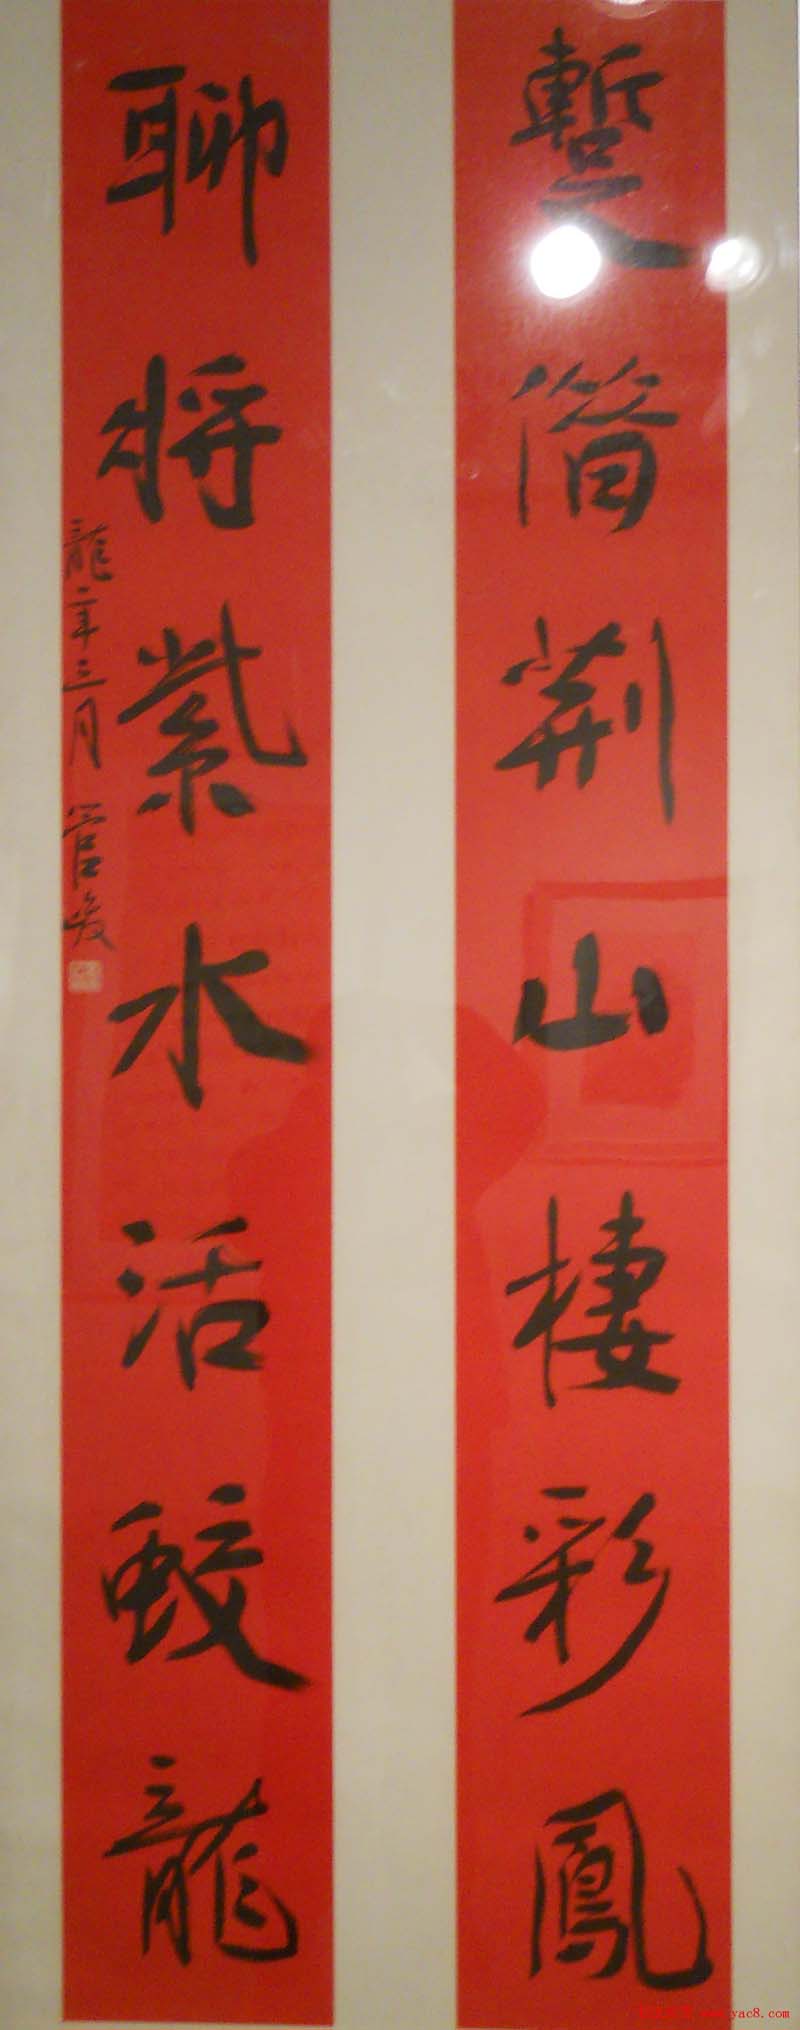 蹔借荆山棲彩鳳
聊將紫水活蛟龍
龍年三月 管峻
yac8.com